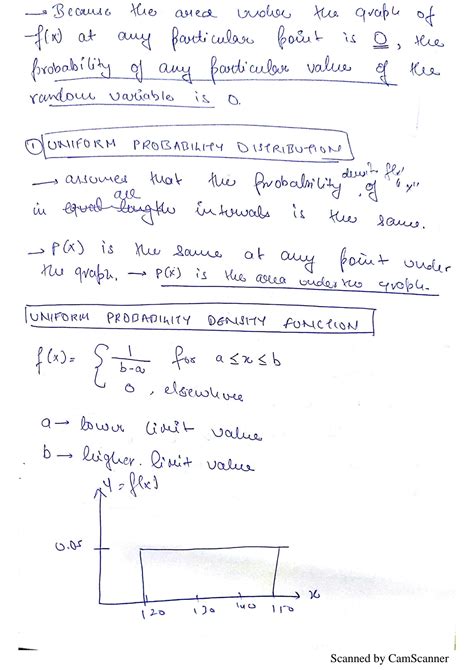 → Because the area under the graph of
f(x) at any particular point is 0, the
probability of any particular value of the
random variable is 0.
① UNIFORM PROBABILITY DISTRIBUTION
→ assumes that the probability density f(x) of "x"
in equal length all intervals is the same.
→ P(x) is the same at any point under
the graph. → P(x) is the area under the graph.
UNIFORM PROBABILITY DENSITY FUNCTION
f(x) = { 1/(b-a) for a ≤ x ≤ b
0, elsewhere
a → lower limit value
b → higher limit value
y = f(x)
0.05
120 130 140 150 x
Scanned by CamScanner